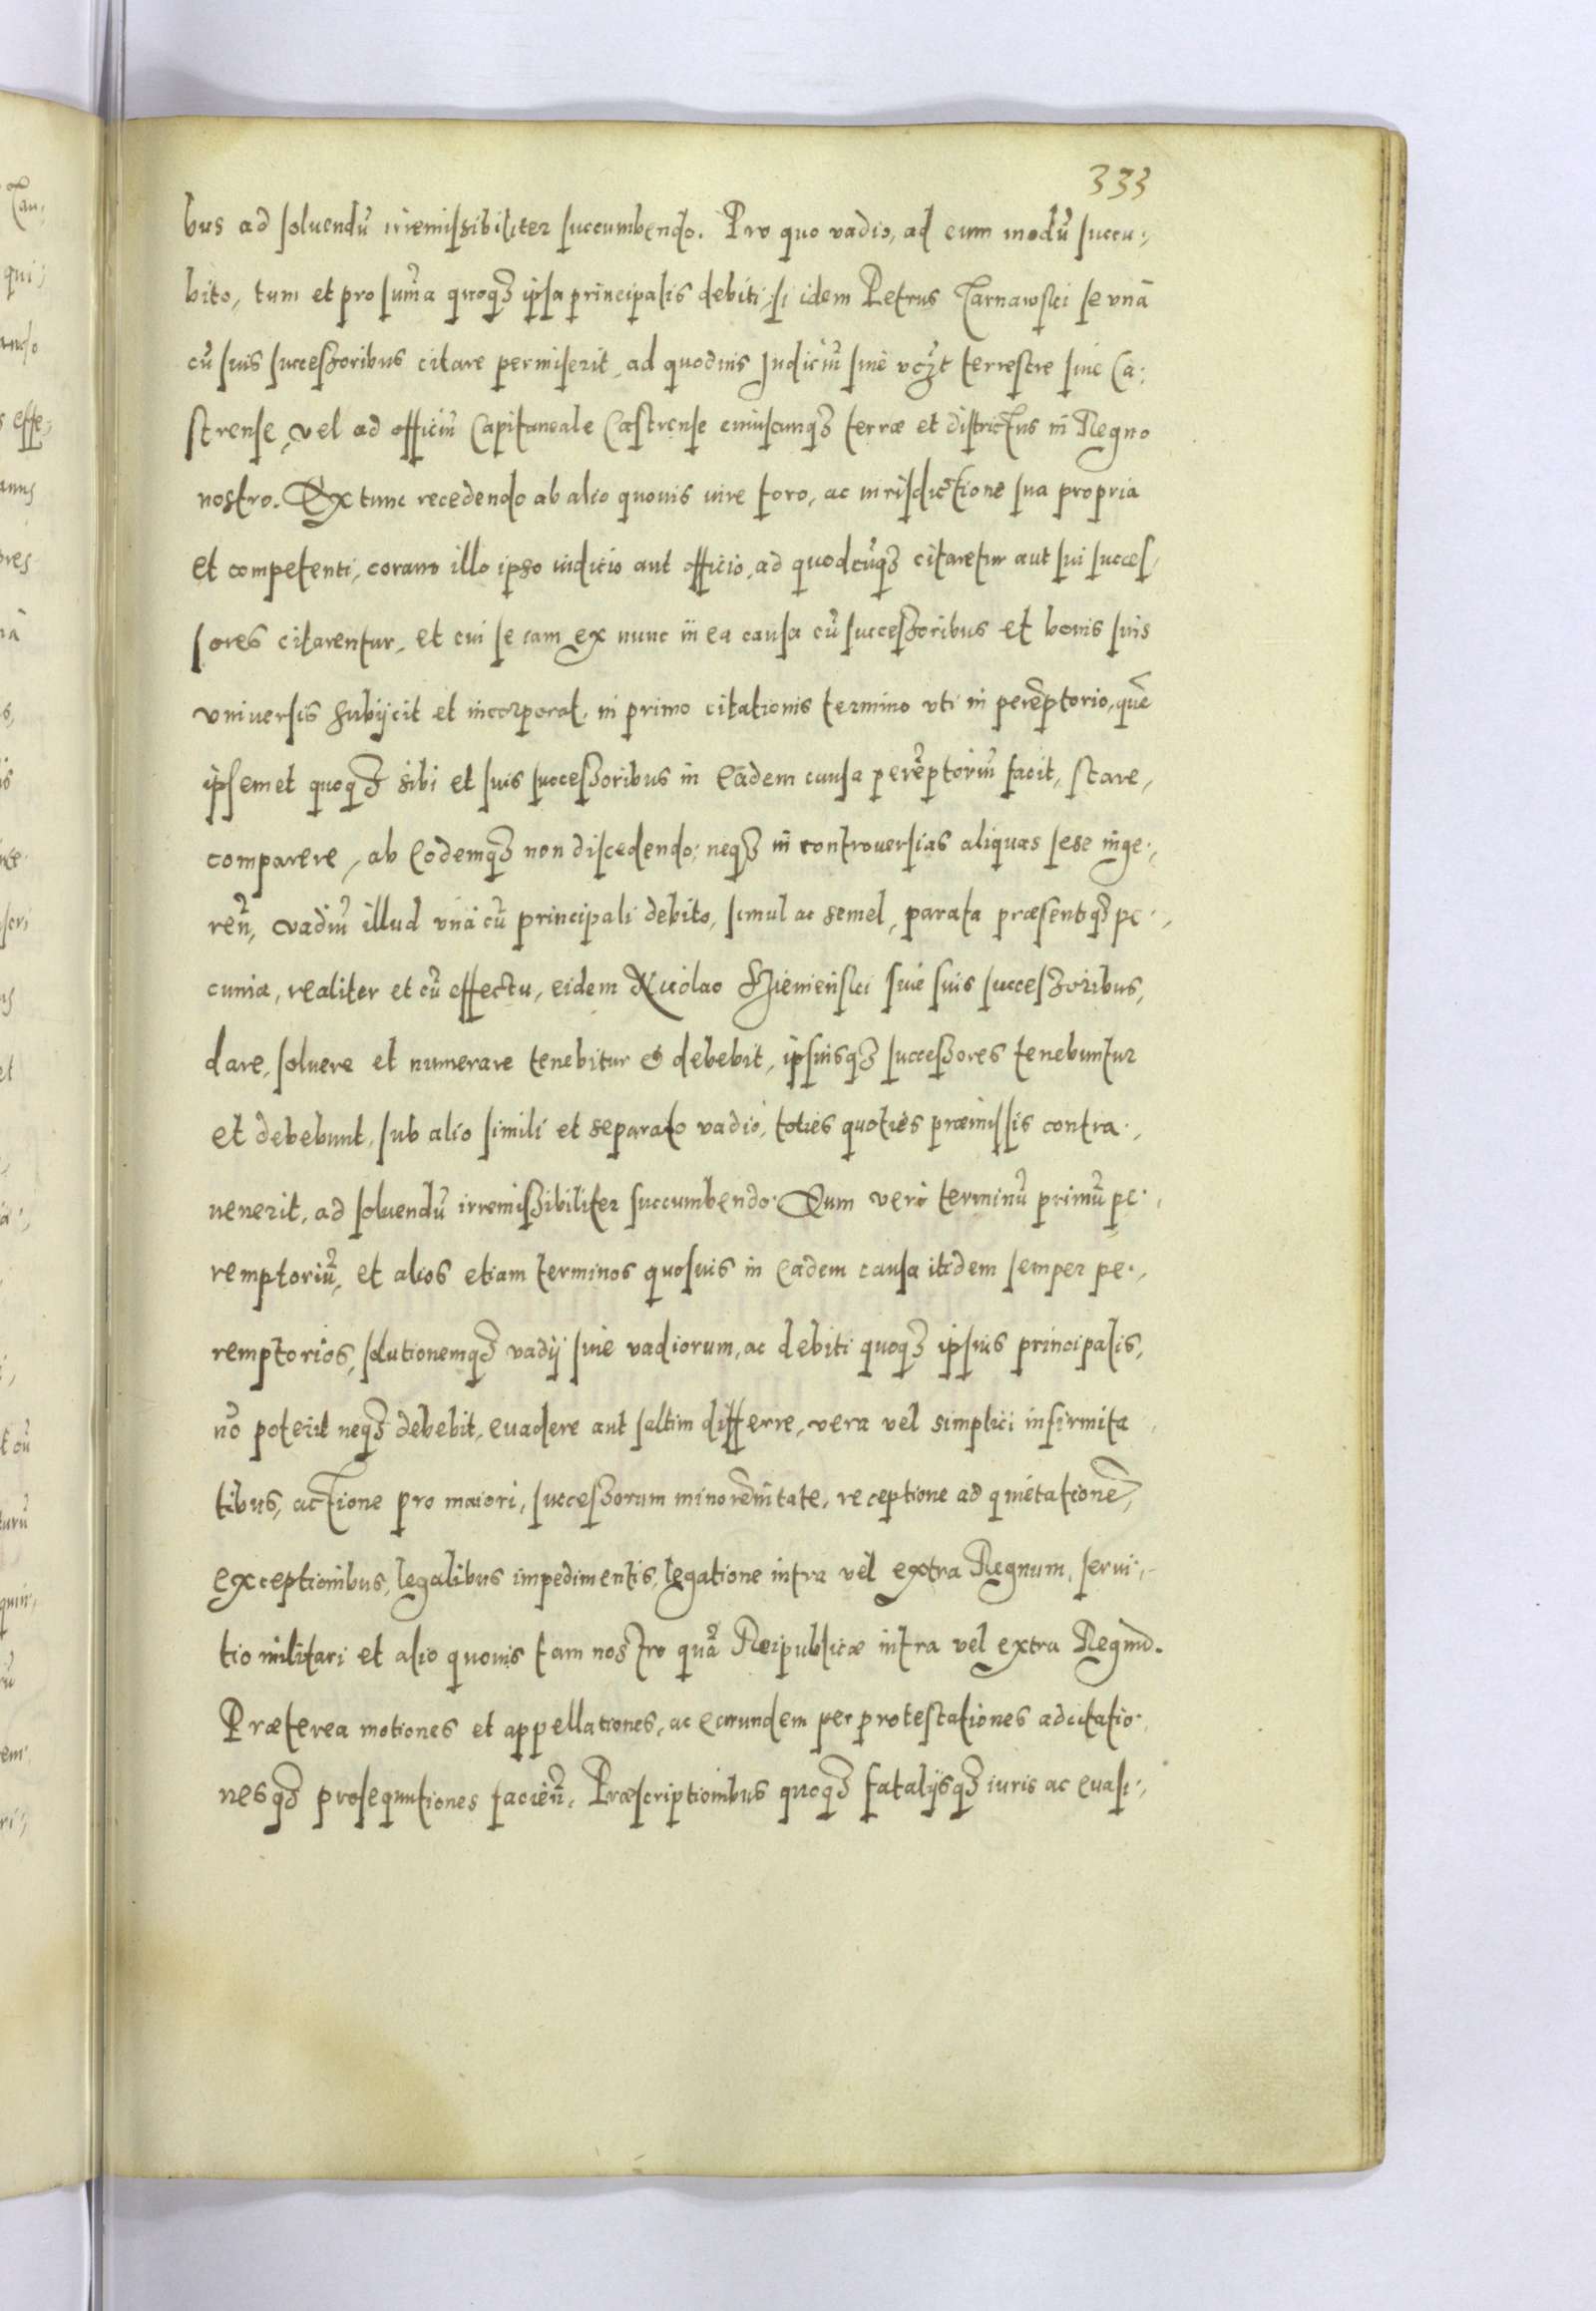 333
bus ad soluendū irremissibiliter succumbendo. Pro quo vadio, ad eum modū succu:,
bito, tum et pro sum̃a quoqʒ ipsa principalis debiti, si idem Petrus Tarnawski se vnā
cū suis successoribus citare permiserit, ad quoduis Judiciū siue terrestre siue Ca:
strense, vel ad officiū Capitaneale Castrense cuiuscunqʒ terræ et districtus in Regno
nostro. Ex tunc recedendo ab alio quouis iure foro, ac iurisdictione sua propria
et competenti, coram illo ipso iudicio aut officio, ad quodcūqʒ citaretur aut sui succes,
sores citarentur, et cui se iam ex nunc in ea causa cū successoribus et bonis suis
vniuersis subijcit et incorporat, in primo citationis termino vti in perēptorio, quē
ipsemet quoqʒ sibi et suis successoribus in Eadem causa perēptoriū facit, stare,
comparere, ab Eodemqʒ non discedendo, neqʒ in controuersias aliquas sese inge:,
reñ, vadiū illud vnā cū principali debito, simul ac semel, parata præsentiqʒ pe:,
cunia, realiter et cū effectu, eidem Nicolao siue suis successoribus,
dare, soluere et numerare tenebitur & debebit, ipsiusqʒ successores tenebuntur
et debebunt, sub alio simili et separato vadio, toties quoties præmissis contra:,
uenerit, ad soluendū irremissibiliter succumbendo. Quem vero terminū primū pe:,
remptoriū, et alios etiam terminos quosuis in Eadem causa itidem semper pe:,
remptorios, solutionemqʒ vadij siue vadiorum, ac debiti quoqʒ ipsius principalis,
nō poterit neqʒ debebit, euadere aut saltim differre, vera vel simplici infirmita
tibus, actione pro maiori, successorum minorēnitate, receptione ad quietationē,
exceptionibus, legalibus impedimentis, legatione intra vel extra Regnum, serui:,
tio militari et alio quouis tam nostro quā Reipublicæ intra vel extra Regnū.
Præterea motiones et appellationes, ac earundem per protestationes adcitatio:
nesqʒ prosequutiones facieñ. Præscriptionibus quoqʒ fatalijsqʒ iuris ac euasi:,